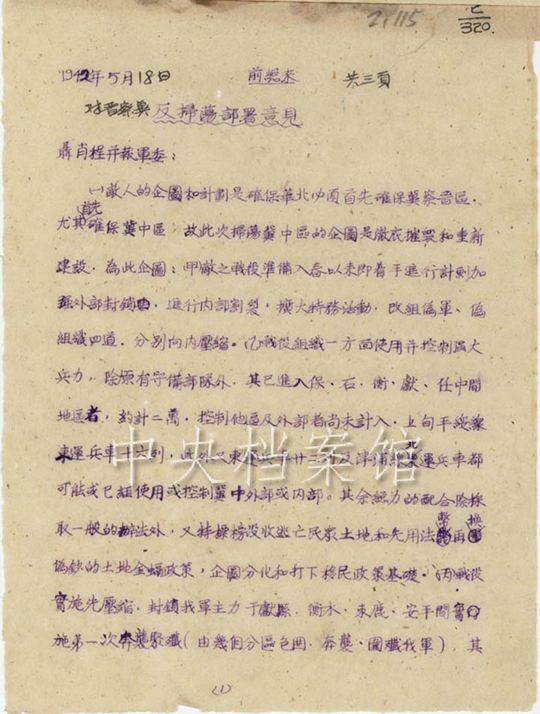 21115
七
320
1942年5月18日 前總來 共三頁
对晋察冀反掃蕩部署意見
聶肖程并報軍委:
(一)敵人的企圖和計劃是確保華北,必須首先確保冀察晉區.
尤其首先確保冀中區;故此次掃蕩冀中區的企圖是澈底摧毀和重新
建設,為此企圖:(甲)敵之戰役準備入春以來即着手進行計劃加
強外部封鎖,進行内部割裂,擴大特務活動,改组偽軍、偽
組織四道,分别向内壓縮.(乙)戰役组織一方面使用并控制强大
兵力,除原有守備部隊外,其已進入保、石、衡、獻、任中間
地區者,約計二萬,控制他區及外部者尚未計入,上旬平綏線
東運兵車十六列,此外又東運兵車廿三列及津浦線北運兵車都
可能或已經使用或控制冀中外部或内部.其余經力的配合除採
取一般的辦法外,又特標榜没收逃亡民衆土地和先用法幣再換
偽鈔的土地金蝠政策,企圖分化和打下移民政策基礎.(丙)戰役
實施先壓縮,封鎖我軍主力于獻縣、衡水、束鹿、安平間實
施第一次奔襲聚殲(由幾個分區包囲、奔襲、圍殲我軍),其
(1)
中央档案馆